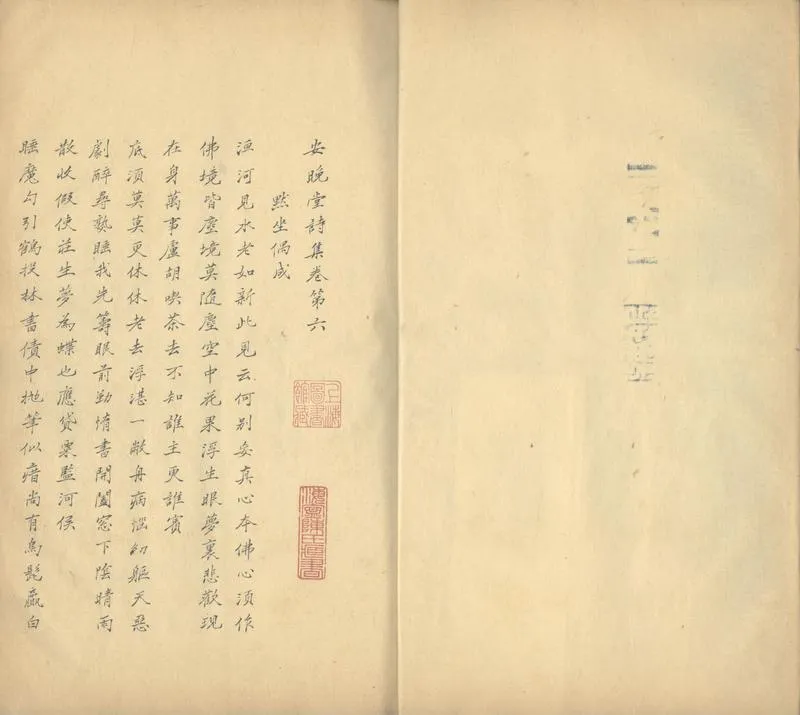 安晚堂詩集卷第六
默坐偶成
洹河見水老如新此見云何別妄真心本佛心須作
佛境皆塵境莫隨塵空中花果浮生眼夢裏悲歡現
在身萬事盧胡喫茶去不知誰主更誰賓
底須莫莫更休休老去浮湛一敝舟病惱幻軀天惡
劇醉尋熟睡我先籌眠前勤惰書開闔窓下陰晴雨
散收假使莊生夢為蝶也應貸粟監河侯
睡魔勾引鶴投林書債中抛筆似瘖尚有烏髭羸白
上海
圖書
館藏